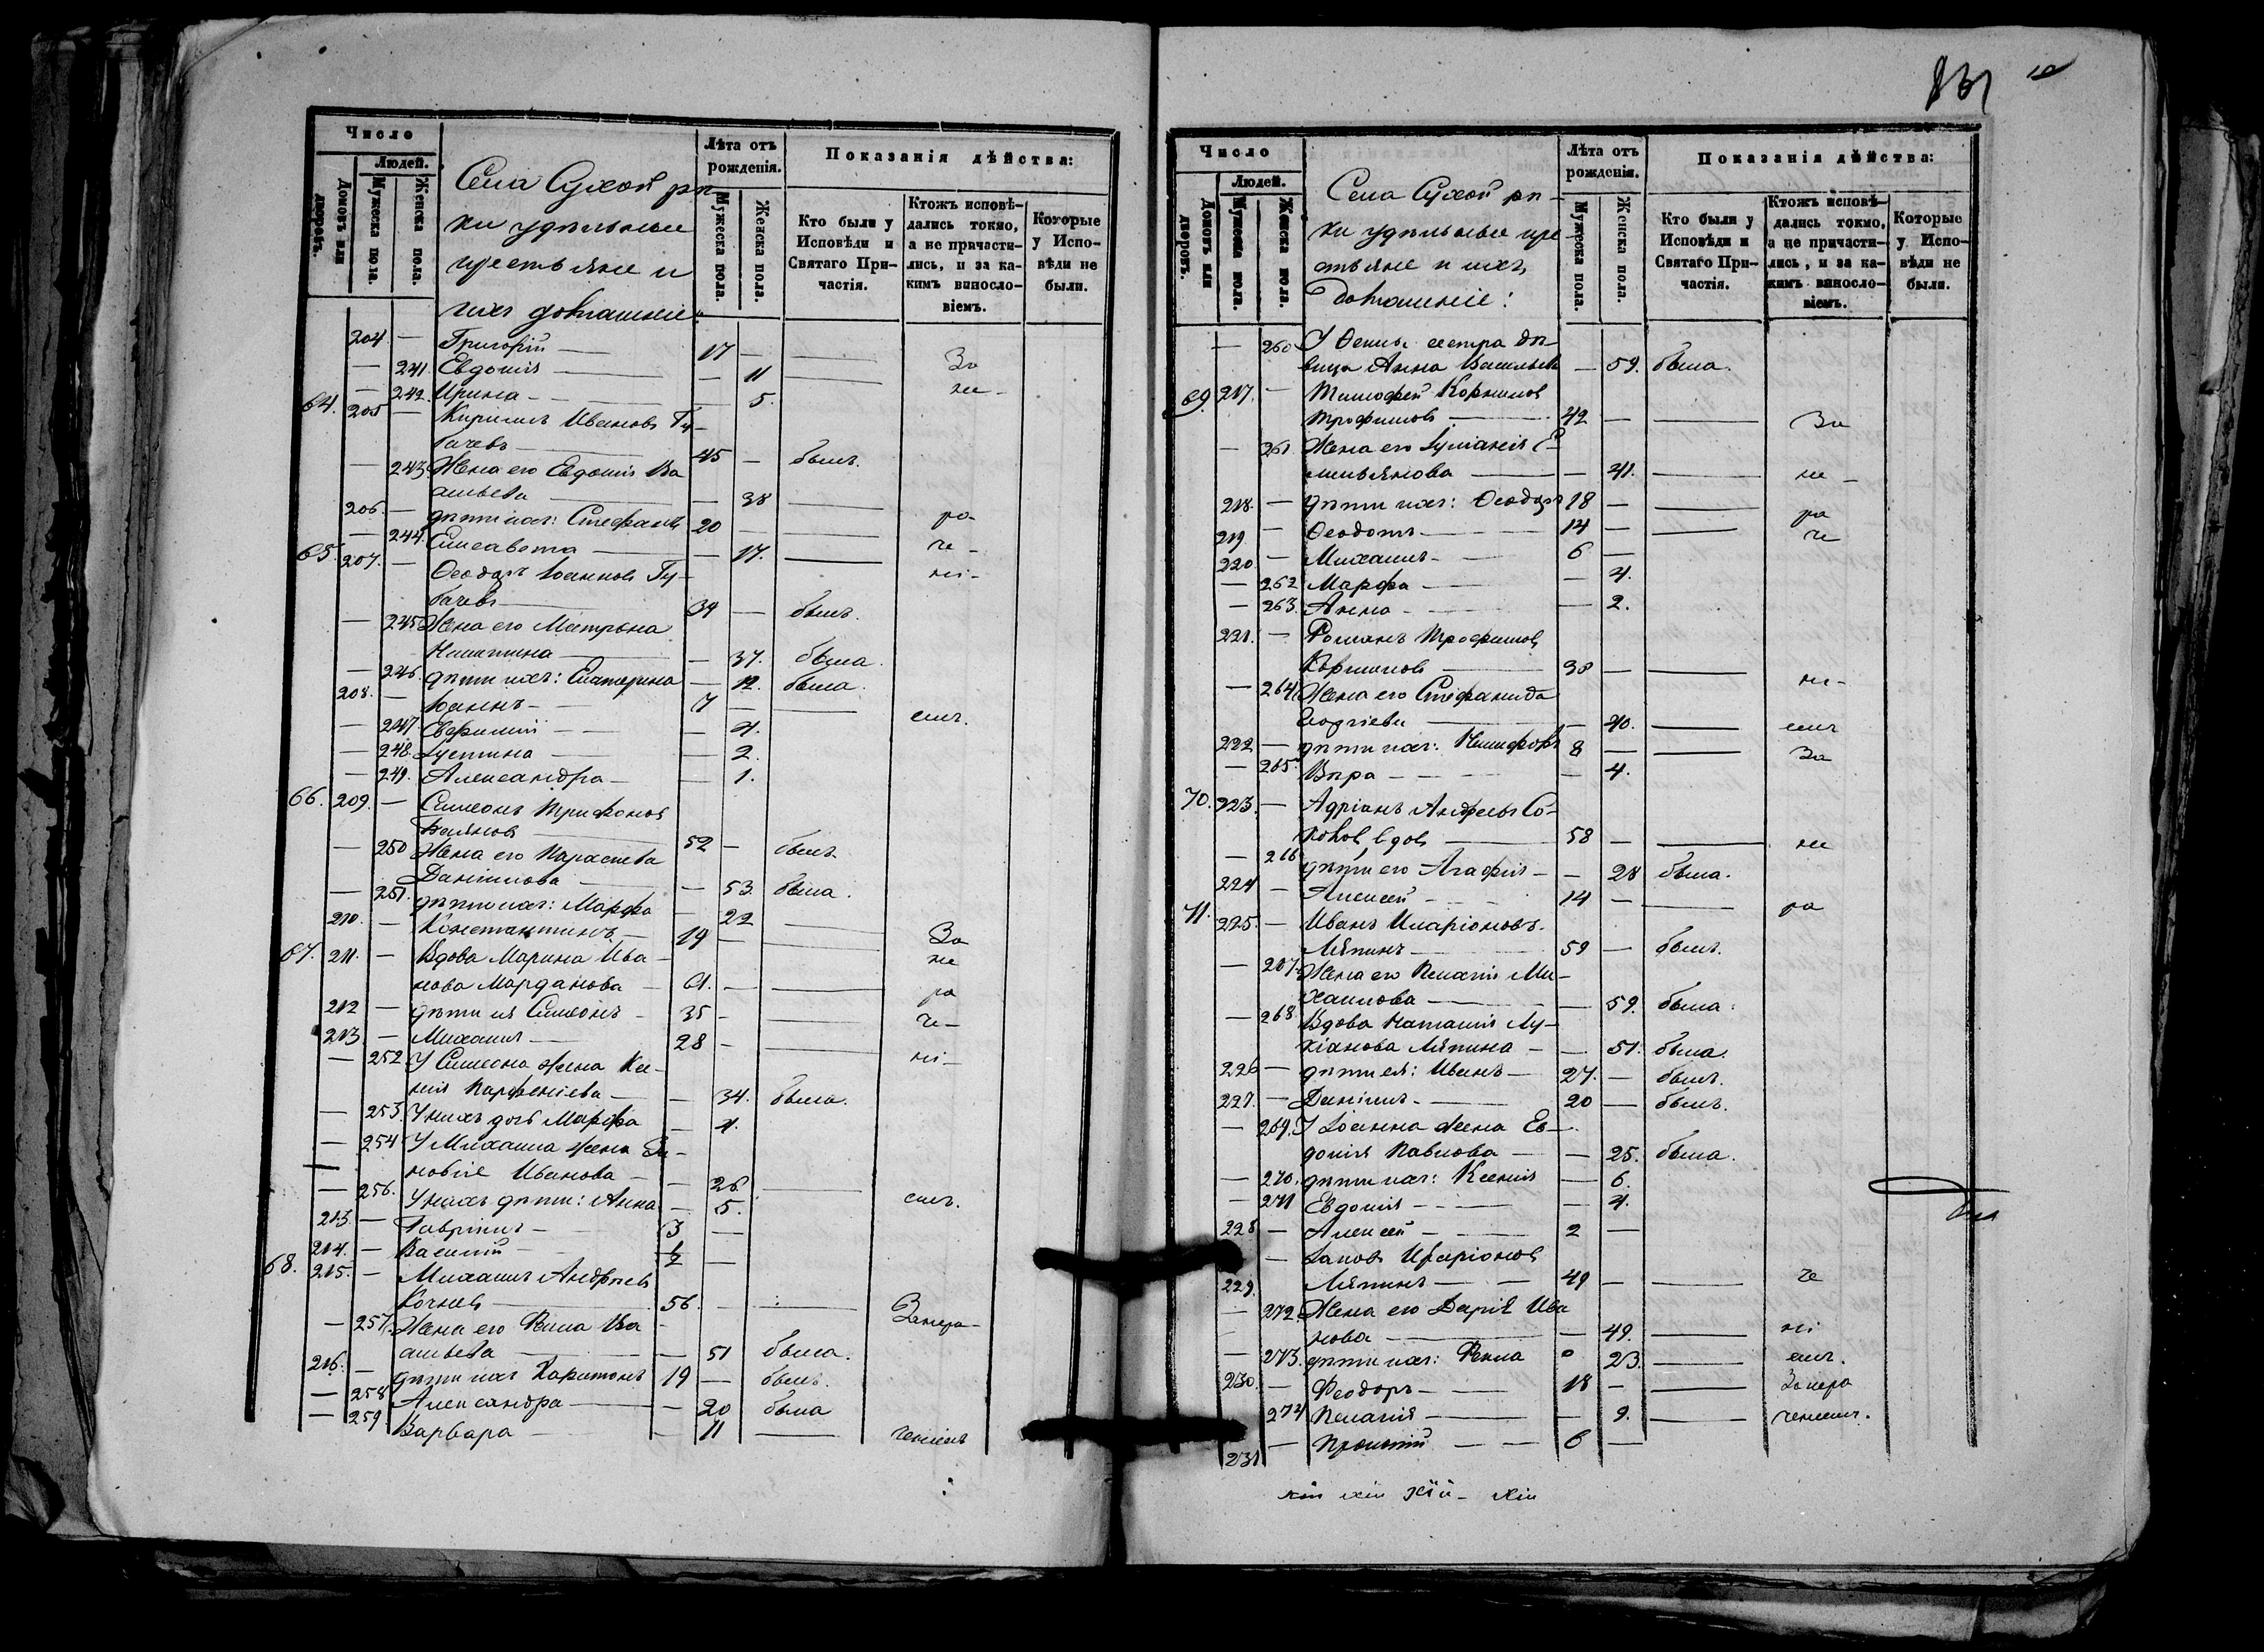 131
Число
Людей.
Домовъ или дворовъ.
Мужеска пола.
Женска пола.
Села Сухой рѣ-
ки удѣльные
крестьяне и
ихъ домашніе
Лѣта отъ рожденія.
Мужеска пола.
Женска пола.
Показанія дѣйства:
Кто были у Исповѣди и Святаго Причастія.
Ктожъ исповѣ-
дались токмо,
а не причасти-
лись, и за ка-
кимъ винословіемъ.
Которые у Исповѣди не были.
204 — Григорій — 17 — — За
— 241 Евдокія — — 11 — не-
— 242. Ирина — — 5.
64. 205 — Кириллъ Ивановъ Гу-
бачевъ — 45 — былъ.
— 243 Жена его Евдокія Ва
сильева — — 38 — ра-
206. — дѣти ихъ: Стефанъ 20 — — че-
— 244. Елисавета — — 17. — ні-
65. 207. — Ѳеодоръ Іоанновъ Гу-
бачевъ — 39 — былъ.
— 245 Жена его Матрона
Никитина — — 37. была.
— 246. дѣти ихъ: Екатерина — 12. была.
208. — Іоаннъ — 7 — — емъ.
— 247 Евфимій — — 4.
— 248. Іустина — — 2.
— 249. Александра — — 1.
66. 209. — Симеонъ Трифоновъ
52 — былъ
— 250 Жена его Параскева
Даніилова — — 53. была.
— 251. дѣти ихъ: Марфа — 22
210. — Константинъ — 19 — — За
67. 211. — Вдова Марина Ива-
нова Марданова — 61. — — ра
212 — дѣти ея Симеонъ — 35 — — че-
213 — Михаилъ — 28 — — ні-
— 252 У Симеона жена Ксе-
нія Парѳеніева — — 34. была.
— 253. У нихъ дочь Марфа — 4.
— 254 У Михаила жена
Иванова — — 26 — емъ.
— 256. У нихъ дѣти: Анна — 5.
213. — Гавріилъ — 3 —
214. — Василій —
68. 215. — Михаилъ Андреевъ
56. — — Занера-
— 257. Жена его Ѳекла Ва-
сильева — — 51 была.
216. — дѣти ихъ Харитонъ 19 — былъ.
— 258 Александра — — 20 была
— 259 Варвара — — 11 — ченіемъ
Число
Людей.
Домовъ или дворовъ.
Мужеска пола.
Женска пола.
Села Сухой рѣ-
ки удѣльные кре-
стьяне и ихъ
домашніе:
Лѣта отъ рожденія.
Мужеска пола.
Женска пола.
Показанія дѣйства:
Кто были у Исповѣди и Святаго Причастія.
Ктожъ исповѣ-
дались токмо,
а не причасти-
лись, и за ка-
кимъ винословіемъ.
Которые у Исповѣди не были.
— 260 У Ѳеклы сестра дѣ-
вица Анна Васильева — 59. была.
69. 217. — Тимофей
Трофимовъ — 42 — — За
— 261 Жена его Іуліанія Е-
мильянова — — 41. — не-
218. — дѣти ихъ: Ѳеодоръ 18 — — ра
219 — Ѳеодотъ — 14 — — че
220 — Михаилъ — 6 —
— 262 Марфа — — 4.
— 263. Анна — — 2.
221. — Романъ Трофимовъ
38 — — ні-
— 264 Жена его Стефанида
— 40. — емъ
222 — дѣти ихъ: Никифоръ 8 — — За
— 265. Вѣра — — 4.
70. 223. — Адріанъ Андреевъ Со-
коловъ, вдовъ — 58 — — не
— 266 дѣти его Агафія — — 28 была.
224 — Алексей — 14 — — ра
71. 225. — Иванъ Иларіоновъ
Ляпинъ — 59 — былъ.
— 267. Жена его Пелагія Ми-
хаилова — — 59. была.
— 268 Вдова Наталія Лу-
кіанова Ляпина — — 51. была.
226 — дѣти ея: Иванъ — 27. — былъ.
227. — Даніилъ — 20 — былъ.
— 269. У Іоанна жена Ев-
докія Павлова — — 25. была.
— 270. дѣти ихъ: Ксенія — 6.
— 271 Евдокія — — 4.
228 — Алексей — 2 —
229. — Іаковъ Иларіоновъ
Ляпинъ — 49 — — че
— 272. Жена его Дарія Ива
нова — — 49. — ні
— 273. дѣти ихъ: Ѳекла 23. — емъ.
230. — Феодоръ — 18 — — Занера
274 Пелагія — — 9. — ченіемъ.
231 — Прокопій — 6 —